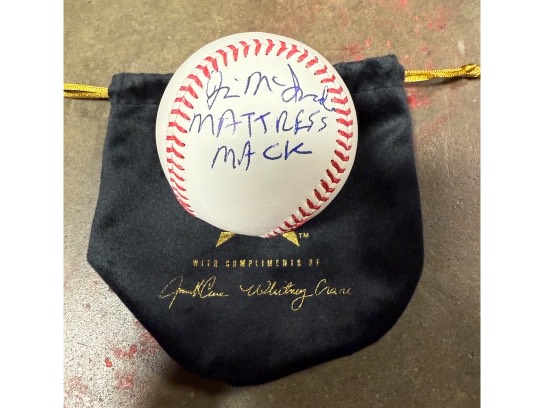 Jim McIngvale
MATTRESS
MACK
TM
WITH COMPLIMENTS OF
Jim Crane Whitney Crane